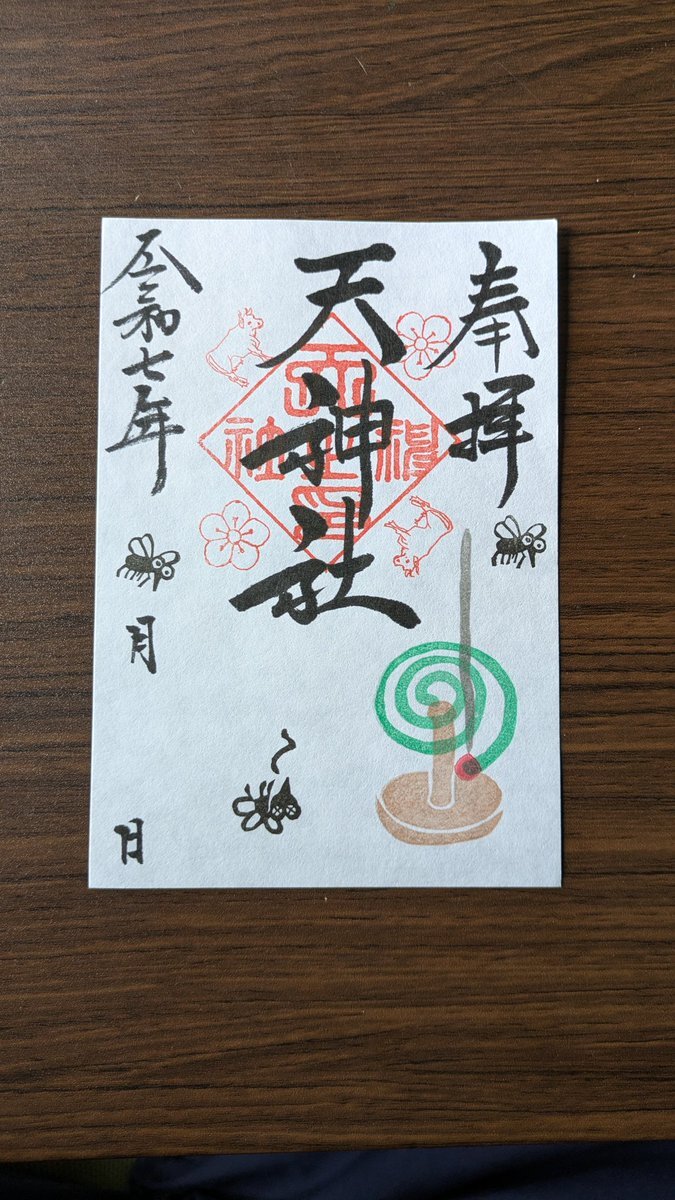 奉拝
天神社
令和七年 月 日